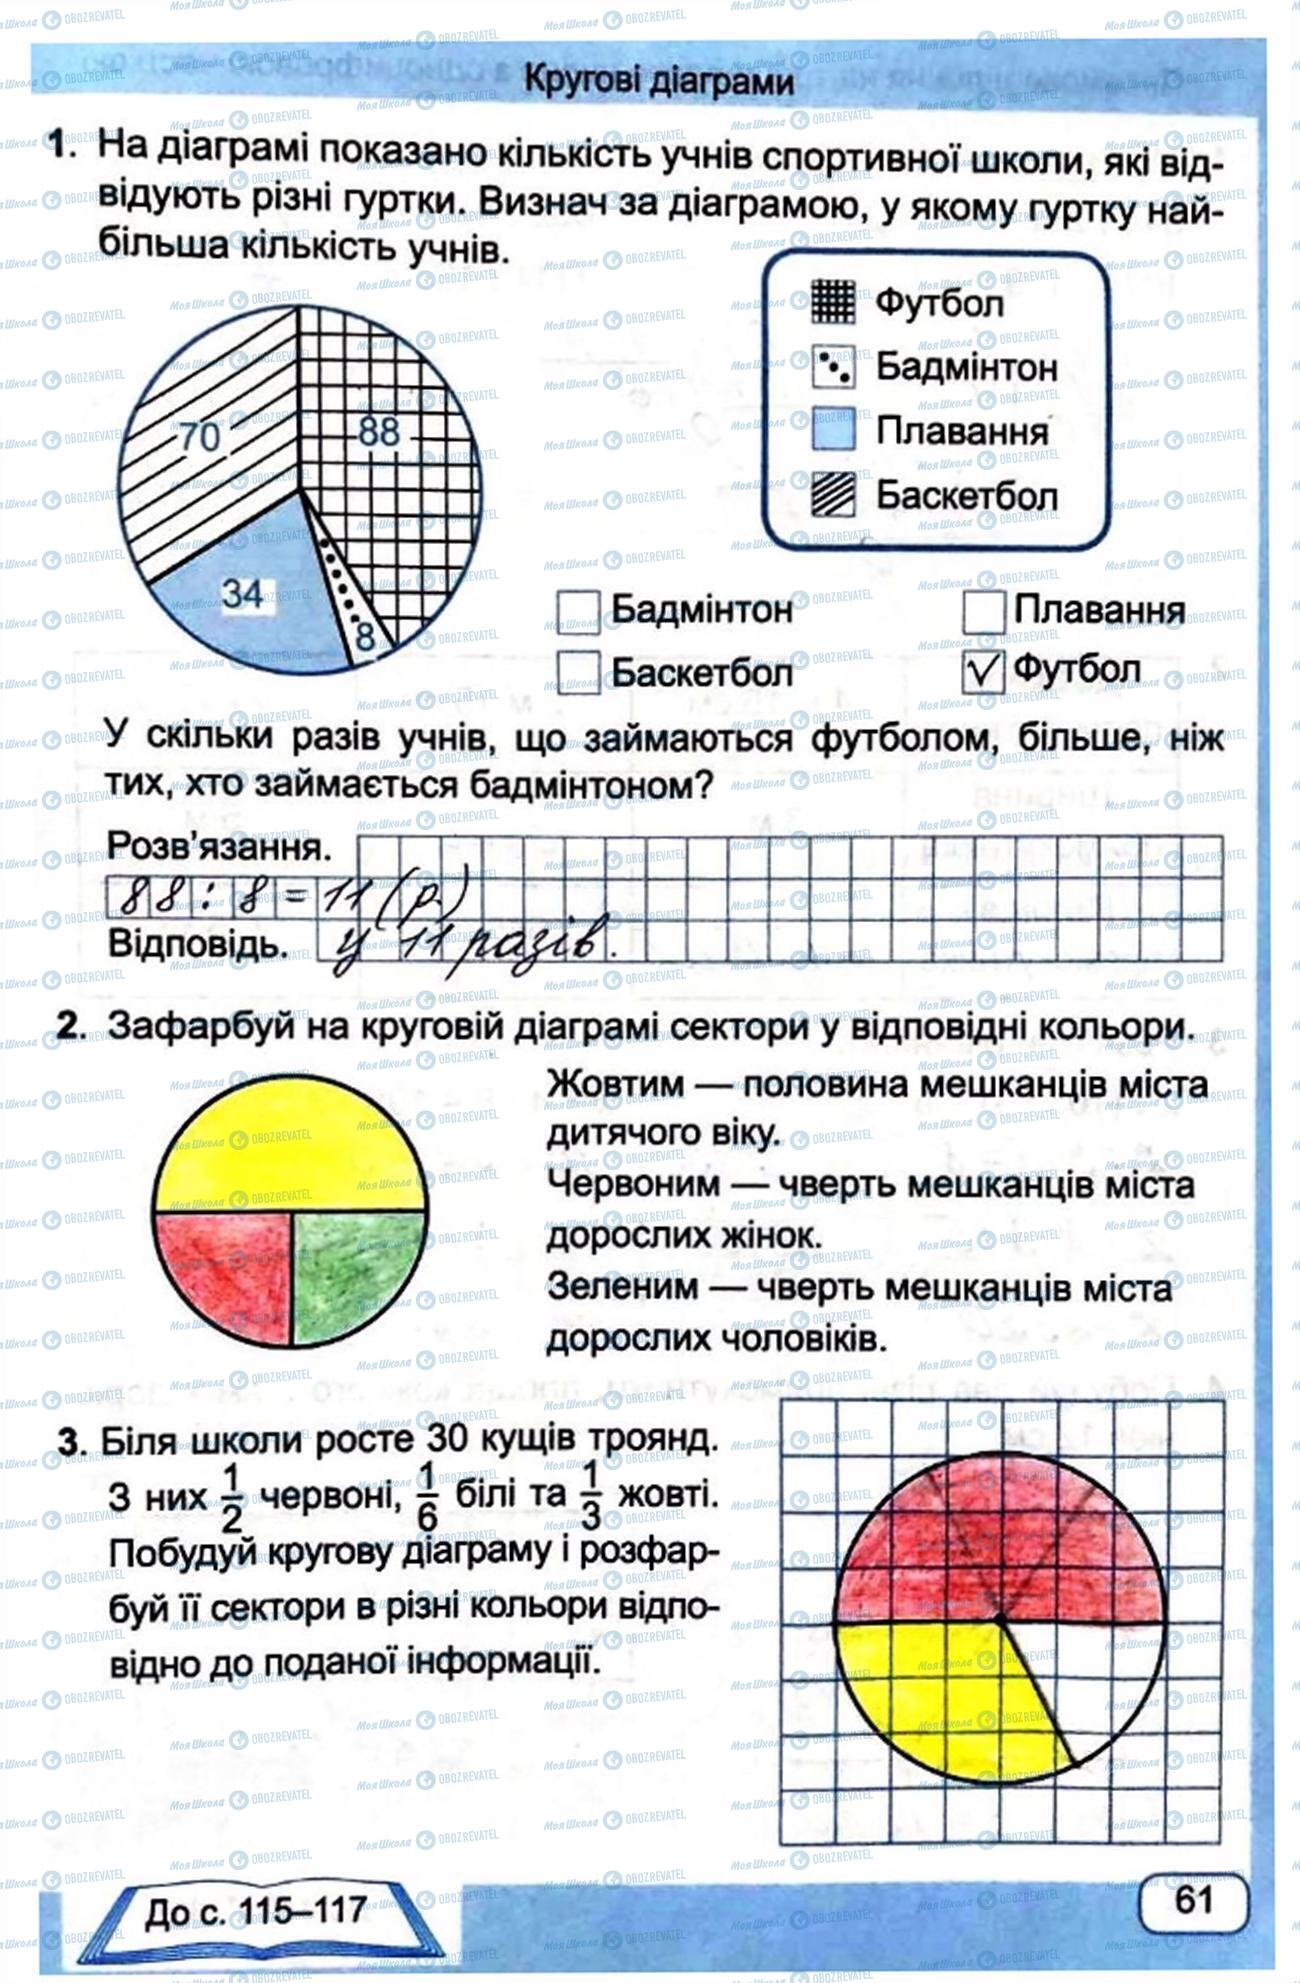 Кругові діаграми
1. На діаграмі показано кількість учнів спортивної школи, які від-
відують різні гуртки. Визнач за діаграмою, у якому гуртку най-
більша кількість учнів.
70
88
34
8
Футбол
Бадмінтон
Плавання
Баскетбол
Бадмінтон
Плавання
Баскетбол
Футбол
У скільки разів учнів, що займаються футболом, більше, ніж
тих, хто займається бадмінтоном?
Розв'язання.
88 : 8 = 11 (р.)
Відповідь. у 11 разів.
2. Зафарбуй на круговій діаграмі сектори у відповідні кольори.
Жовтим — половина мешканців міста
дитячого віку.
Червоним — чверть мешканців міста
дорослих жінок.
Зеленим — чверть мешканців міста
дорослих чоловіків.
3. Біля школи росте 30 кущів троянд.
З них 1/2 червоні, 1/6 білі та 1/3 жовті.
Побудуй кругову діаграму і розфар-
буй її сектори в різні кольори відпо-
відно до поданої інформації.
До с. 115–117
61
МояШкола OBOZREVATEL